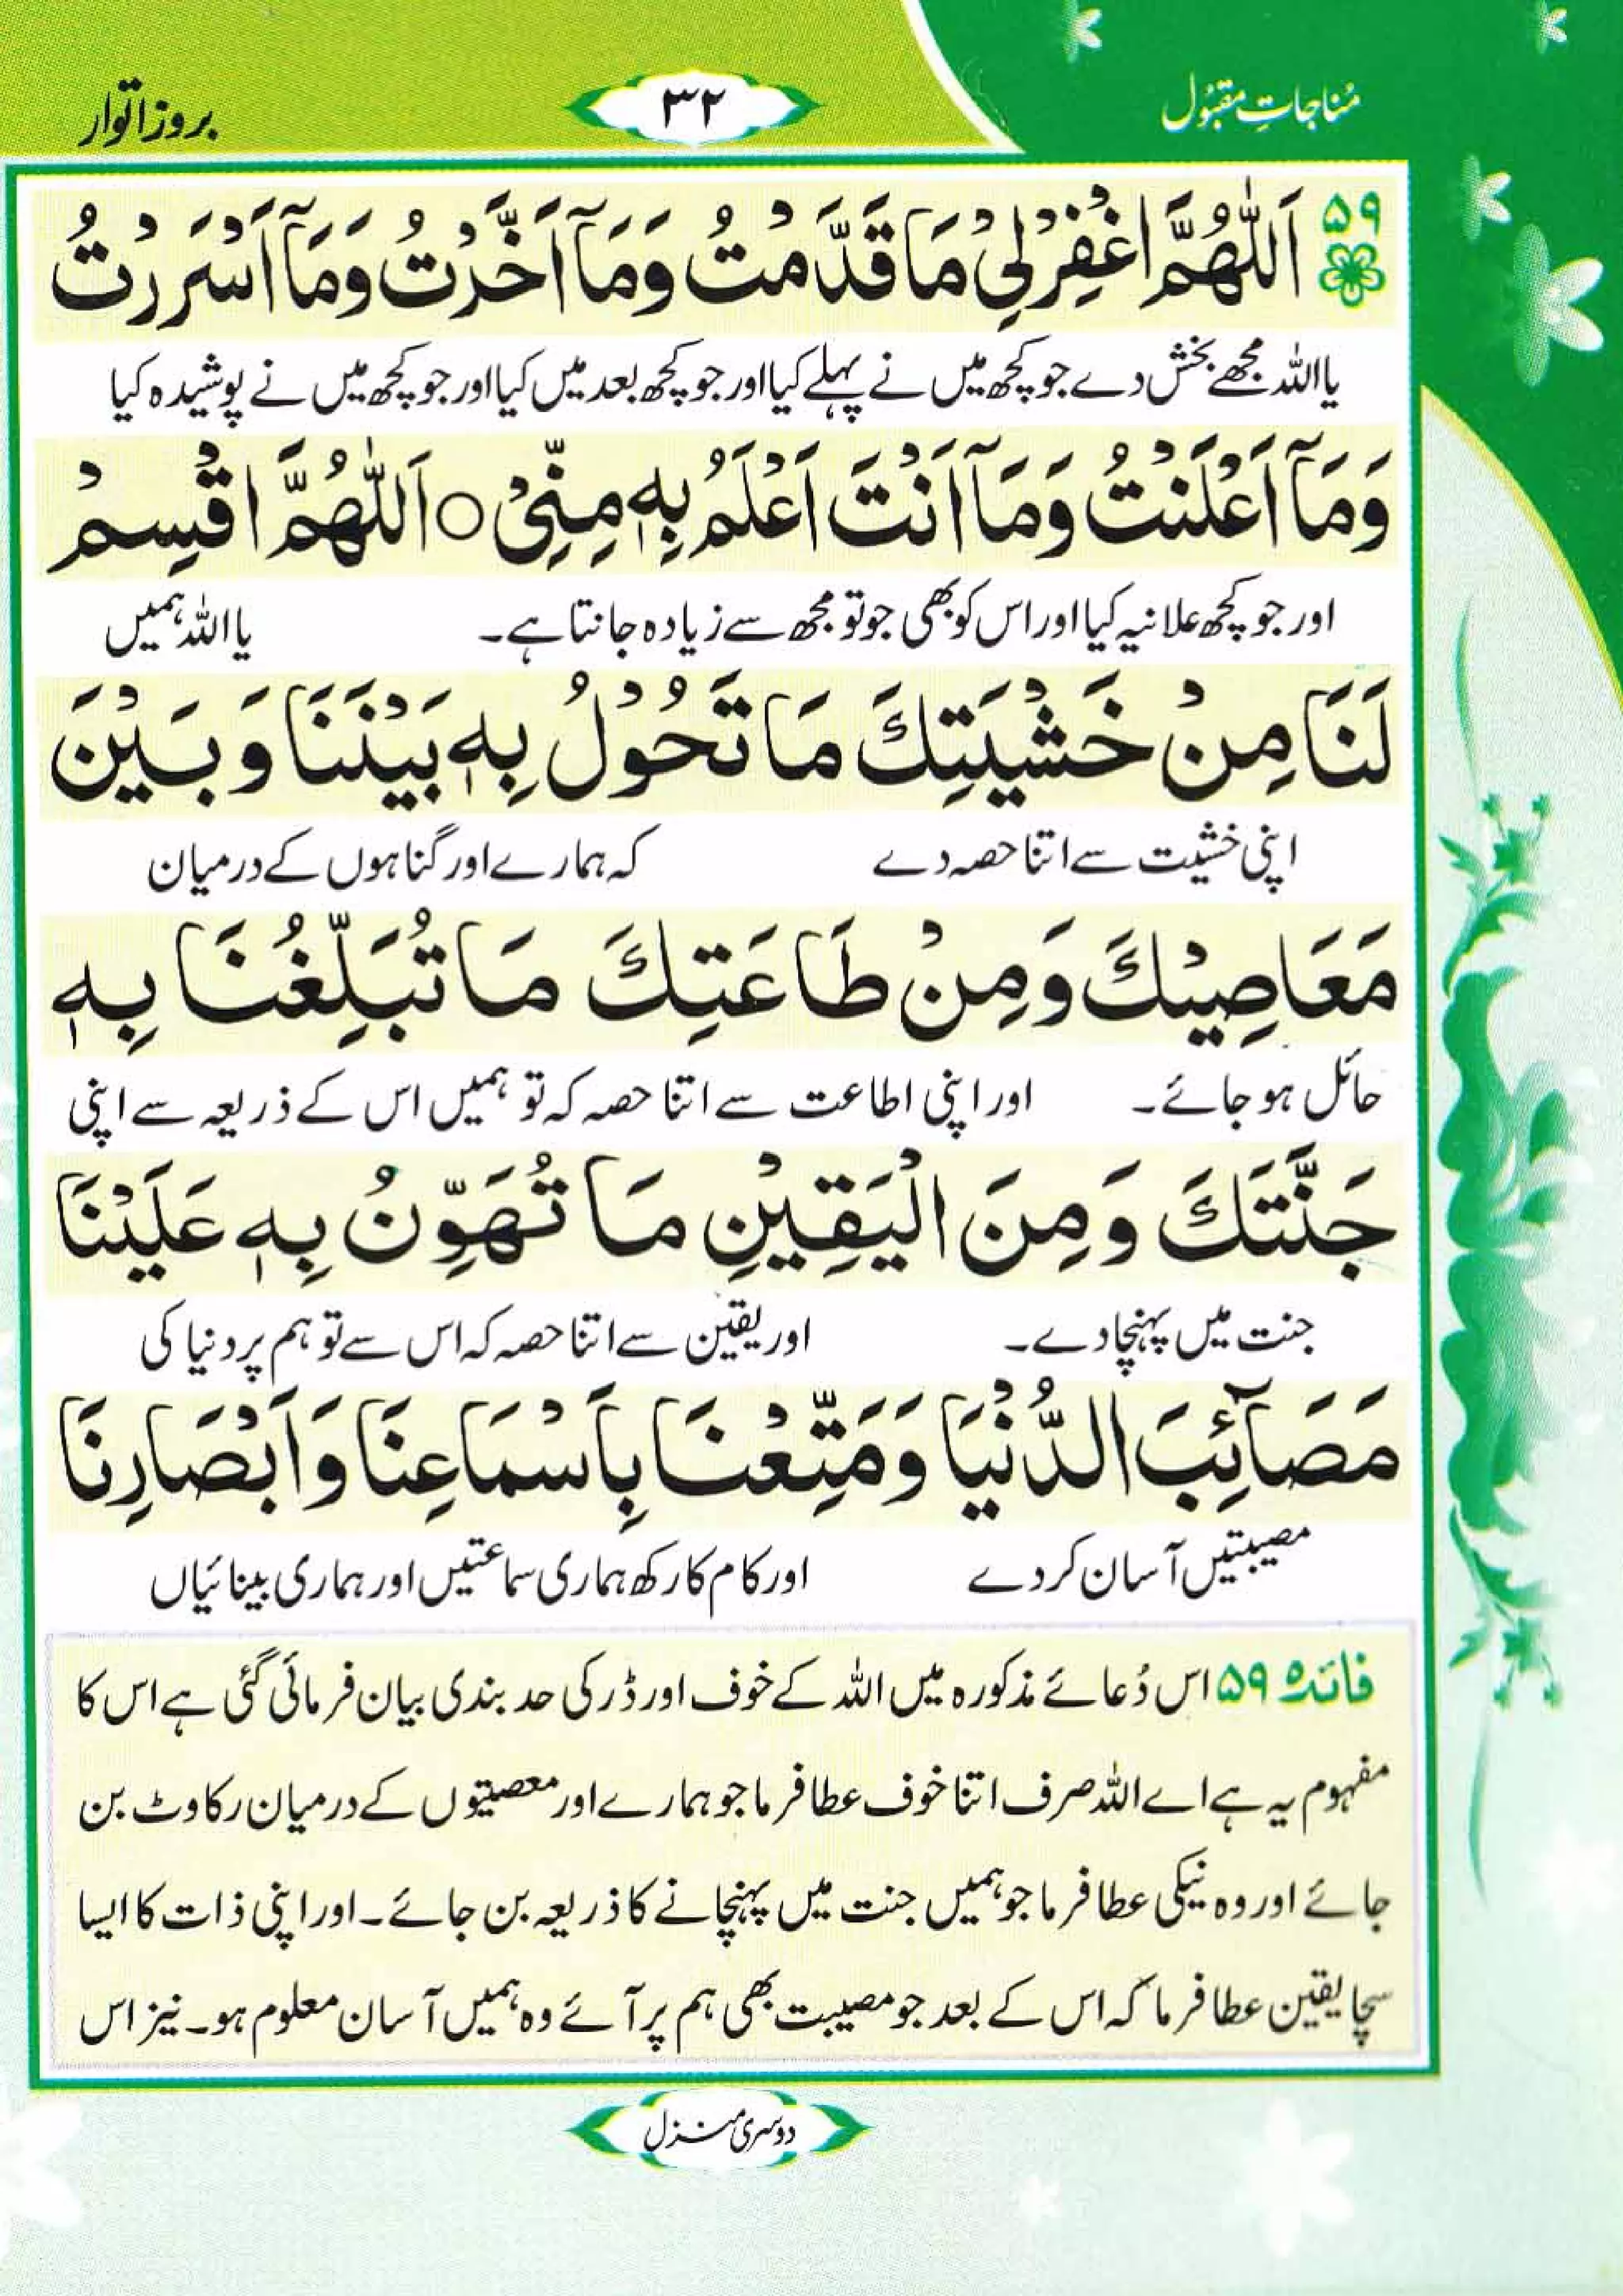 مُناجاتِ مقبُول
۳۲
بروز اتوار
۵۹ اَللّٰهُمَّ اغْفِرْ لِيْ مَا قَدَّمْتُ وَمَآ اَخَّرْتُ وَمَآ اَسْرَرْتُ
یا اللہ مجھے بخش دے جو کچھ میں نے پہلے کیا اور جو کچھ بعد میں کیا اور جو کچھ میں نے پوشیدہ کیا
وَمَآ اَعْلَنْتُ وَمَآ اَنْتَ اَعْلَمُ بِهٖ مِنِّيْ ○ اَللّٰهُمَّ اقْسِمْ
اور جو کچھ علانیہ کیا اور اس کو بھی جو تو مجھ سے زیادہ جانتا ہے۔ یا اللہ ہمیں
لَنَا مِنْ خَشْيَتِكَ مَا تَحُوْلُ بِهٖ بَيْنَنَا وَبَيْنَ
اپنی خشیت سے اتنا حصہ دے کہ ہمارے اور گناہوں کے درمیان
مَعَاصِيْكَ وَمِنْ طَاعَتِكَ مَا تُبَلِّغُنَا بِهٖ
حائل ہو جائے۔ اور اپنی اطاعت سے اتنا حصہ کہ تو ہمیں اس کے ذریعہ سے اپنی
جَنَّتَكَ وَمِنَ الْيَقِيْنِ مَا تُهَوِّنُ بِهٖ عَلَيْنَا
جنت میں پہنچا دے۔ اور یقین سے اتنا حصہ کہ اس سے تو ہم پر دنیا کی
مَصَآئِبَ الدُّنْيَا وَمَتِّعْنَا بِاَسْمَاعِنَا وَاَبْصَارِنَا
مصیبتیں آسان کر دے اور کام کا رکھ ہماری سماعتیں اور ہماری بینائیاں
فائدہ ۵۹ اس دُعائے مذکورہ میں اللہ کے خوف اور ڈر کی حد بندی بیان فرمائی گئی ہے اس کا
مفہوم یہ ہے اے اللہ صرف اتنا خوف عطا فرما جو ہمارے اور معصیتوں کے درمیان رکاوٹ بن
جائے اور وہ نیکی عطا فرما جو ہمیں جنت میں پہنچانے کا ذریعہ بن جائے۔ اور اپنی ذات کا ایسا
سچا یقین عطا فرما کہ اس کے بعد جو مصیبت بھی ہم پر آئے وہ ہمیں آسان معلوم ہو۔ نیز اس
دوسری منزل